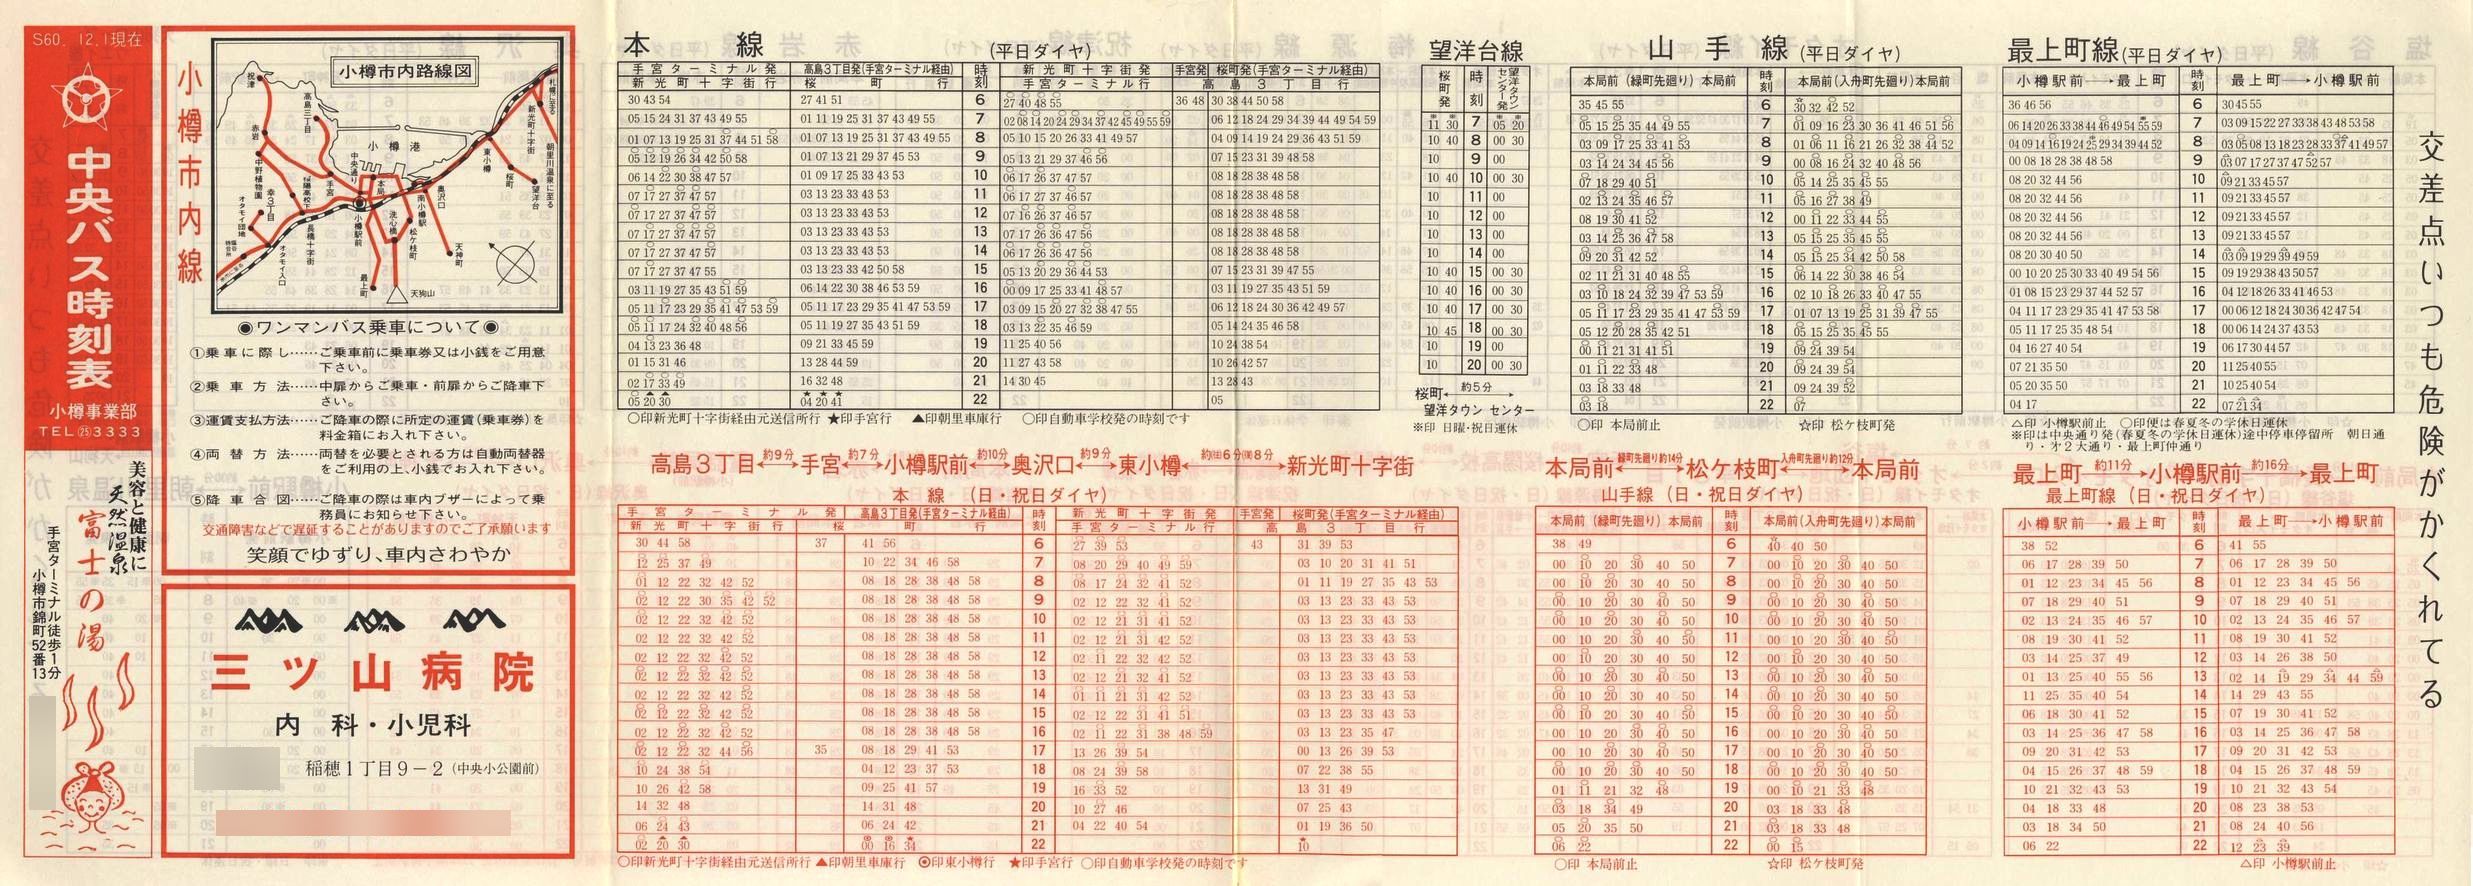 S60. 12.1現在
中央バス時刻表
小樽事業部
TEL㉕3333
美容と健康に
天然温泉
富士の湯
手宮ターミナル徒歩1分
小樽市錦町52番13
小樽市内線
小樽市内路線図
祝津
高島三丁目
赤岩
小樽港
中央通り
本局
手宮
中野植物園
幸3丁目
オタモイ団地
長橋十字街
オタモイ入口
小樽駅前
洗心橋
松ケ枝町
南小樽駅
奥沢口
最上町
天狗山
天神町
東小樽
桜町
望洋台
新光町十字街
朝里川温泉に至る
札幌に至る
◉ワンマンバス乗車について◉
①乗車に際し……ご乗車前に乗車券又は小銭をご用意
下さい。
②乗車方法……中扉からご乗車・前扉からご降車下
さい。
③運賃支払方法……ご降車の際に所定の運賃(乗車券)を
料金箱にお入れ下さい。
④両替方法……両替を必要とされる方は自動両替器
をご利用の上、小銭でお入れ下さい。
⑤降車合図……ご降車の際は車内ブザーによって乗
務員にお知らせ下さい。
交通障害などで遅延することがありますのでご了承願います
笑顔でゆずり、車内さわやか
三ツ山病院
内科・小児科
稲穂1丁目9−2(中央小公園前)
本線 (平日ダイヤ)
手宮ターミナル発 高島3丁目発(手宮ターミナル経由) 時刻 新光町十字街発 手宮発 桜町発(手宮ターミナル経由)
新光町十字街行 桜町行 手宮ターミナル行 高島3丁目行
30 43 54 27 41 51 6 27 40 48 55 36 48 30 38 44 50 58
05 15 24 31 37 43 49 55 01 11 19 25 31 37 43 49 55 7 02 08 14 20 24 29 34 37 42 45 49 55 59 06 12 18 24 29 34 39 44 49 54 59
01 07 13 19 25 31 37 44 51 58 01 07 13 19 25 31 37 43 49 55 8 05 10 15 20 26 33 41 49 57 04 09 14 19 24 29 36 43 51 59
05 12 19 26 34 42 50 58 01 07 13 21 29 37 45 53 9 05 13 21 29 37 46 56 07 15 23 31 39 48 58
06 14 22 30 38 47 57 01 09 17 25 33 43 53 10 06 17 26 37 47 57 08 18 28 38 48 58
07 17 27 37 47 57 03 13 23 33 43 53 11 06 17 27 37 46 57 08 18 28 38 48 58
07 17 27 37 47 57 03 13 23 33 43 53 12 07 16 26 37 46 57 08 18 28 38 48 58
07 17 27 37 47 57 03 13 23 33 43 53 13 07 17 26 36 47 56 08 18 28 38 48 58
07 17 27 37 47 57 03 13 23 33 43 53 14 06 17 26 36 47 56 08 18 28 38 48 58
07 17 27 37 47 55 03 13 23 33 42 50 58 15 05 13 20 29 36 44 53 07 15 23 31 39 47 55
03 11 19 27 35 43 51 59 06 14 22 30 38 46 53 59 16 00 09 17 25 33 41 48 57 03 11 19 27 35 43 51 59
05 11 17 23 29 35 41 47 53 59 05 11 17 23 29 35 41 47 53 59 17 03 09 15 20 27 32 38 47 55 06 12 18 24 30 36 42 49 57
05 11 17 24 32 40 48 56 05 11 19 27 35 43 51 59 18 03 13 22 35 46 59 05 14 24 35 46 58
04 13 23 36 48 09 21 33 45 59 19 11 25 40 56 10 24 38 54
01 15 31 46 13 28 44 59 20 11 27 43 58 10 26 42 57
02 17 33 49 16 32 48 21 14 30 45 13 28 43
05 20 30 04 20 41 22 05
〇印新光町十字街経由元送信所行 ★印手宮行 ▲印朝里車庫行 〇印自動車学校発の時刻です
高島3丁目←約9分→手宮←約7分→小樽駅前←約10分→奥沢口←約9分→東小樽←約6分 約8分→新光町十字街
本線 (日・祝日ダイヤ)
手宮ターミナル発 高島3丁目発(手宮ターミナル経由) 時刻 新光町十字街発 手宮発 桜町発(手宮ターミナル経由)
新光町十字街行 桜町行 手宮ターミナル行 高島3丁目行
30 44 58 37 41 56 6 27 39 53 43 31 39 53
12 25 37 49 10 22 34 46 58 7 08 20 29 40 49 59 03 10 20 31 41 51
01 12 22 32 42 52 08 18 28 38 48 58 8 08 17 24 32 41 52 01 11 19 27 35 43 53
02 12 22 30 35 42 52 08 18 28 38 48 58 9 02 12 22 32 41 52 03 13 23 33 43 53
02 12 22 32 42 52 08 18 28 38 48 58 10 02 12 21 31 41 52 03 13 23 33 43 53
02 12 22 32 42 52 08 18 28 38 48 58 11 02 12 21 31 42 52 03 13 23 33 43 53
02 12 22 32 42 52 08 18 28 38 48 58 12 02 11 22 32 42 52 03 13 23 33 43 53
02 12 22 32 42 52 08 18 28 38 48 58 13 02 12 21 32 41 52 03 13 23 33 43 53
02 12 22 32 42 52 08 18 28 38 48 58 14 01 11 21 31 42 52 03 13 23 33 43 53
02 12 22 32 42 52 08 18 28 38 48 58 15 02 12 22 31 41 51 03 13 23 33 43 53
02 12 22 32 42 52 08 18 28 38 48 58 16 02 11 22 31 38 48 59 03 13 23 35 47
02 12 22 32 44 56 35 08 18 29 41 53 17 13 26 39 54 00 13 26 39 53
10 24 38 54 04 12 23 37 53 18 08 24 39 58 07 22 38 55
10 26 42 58 09 25 41 57 19 16 33 52 13 31 49
14 32 48 14 31 48 20 10 27 46 07 25 43
06 24 43 06 24 42 21 04 22 40 54 01 19 36 50
02 20 30 00 16 34 22 10
〇印新光町十字街経由元送信所行 ▲印朝里車庫行 ◉印東小樽行 ★印手宮行 〇印自動車学校発の時刻です
望洋台線
桜町発 時刻 望洋タウンセンター発
11 30 7 05 20
10 40 8 00 30
10 9 00
10 40 10 00 30
10 11 00
10 12 00
10 13 00
10 14 00
10 40 15 00 30
10 40 16 00 30
10 40 17 00 30
10 45 18 00 30
10 19 00
10 20 00 30
桜町←約5分→望洋タウンセンター
※印 日曜・祝日運休
山手線 (平日ダイヤ)
本局前(緑町先廻り)本局前 時刻 本局前(入舟町先廻り)本局前
35 45 55 6 30 32 42 52
05 15 25 35 44 49 55 7 01 09 16 23 30 36 41 46 51 56
03 09 17 25 33 41 53 8 01 06 11 16 21 26 32 38 44 52
03 14 24 34 45 56 9 00 08 16 24 32 40 48 56
07 18 29 40 51 10 05 14 25 35 45 55
02 13 24 35 46 57 11 05 16 27 38 49
08 19 30 41 52 12 00 11 22 33 44 55
03 14 25 36 47 58 13 05 15 25 35 45 55
09 20 31 42 52 14 05 15 25 34 42 50 58
02 11 21 31 40 48 55 15 06 14 22 30 38 46 54
03 10 18 24 32 39 47 53 59 16 02 10 18 26 33 40 47 55
05 11 17 23 29 35 41 47 53 59 17 01 07 13 19 25 31 39 47 55
05 12 20 28 35 42 51 18 05 15 25 35 45 55
00 11 21 31 41 51 19 09 24 39 54
01 11 22 33 48 20 09 24 39 54
03 18 33 48 21 09 24 39 52
03 18 22 07
〇印 本局前止 ☆印 松ケ枝町発
本局前←緑町先廻り約14分→松ケ枝町←入舟町先廻り約12分→本局前
山手線 (日・祝日ダイヤ)
本局前(緑町先廻り)本局前 時刻 本局前(入舟町先廻り)本局前
38 49 6 40 40 50
00 10 20 30 40 50 7 00 10 20 30 40 50
00 10 20 30 40 50 8 00 10 20 30 40 50
00 10 20 30 40 50 9 00 10 20 30 40 50
00 10 20 30 40 50 10 00 10 20 30 40 50
00 10 20 30 40 50 11 00 10 20 30 40 50
00 10 20 30 40 50 12 00 10 20 30 40 50
00 10 20 30 40 50 13 00 10 20 30 40 50
00 10 20 30 40 50 14 00 10 20 30 40 50
00 10 20 30 40 50 15 00 10 20 30 40 50
00 10 20 30 40 50 16 00 10 20 30 40 50
00 10 20 30 40 50 17 00 10 20 30 40 50
00 10 20 30 40 50 18 00 10 20 30 40 50
01 11 21 32 48 19 00 10 21 33 48
03 18 34 49 20 03 18 33 48
05 20 35 50 21 03 18 33 48
06 22 22 00 15
〇印 本局前止 ☆印 松ケ枝町発
最上町線(平日ダイヤ)
小樽駅前→最上町 時刻 最上町→小樽駅前
36 46 56 6 30 45 55
06 14 20 26 33 38 44 46 49 54 55 59 7 03 09 15 22 27 33 38 43 48 53 58
04 09 14 16 19 24 25 29 34 39 44 52 8 03 05 08 13 18 23 28 33 37 41 49 57
00 08 18 28 38 48 58 9 03 07 17 27 37 47 52 57
08 20 32 44 56 10 09 21 33 45 57
08 20 32 44 56 11 09 21 33 45 57
08 20 32 44 56 12 09 21 33 45 57
08 20 32 44 56 13 09 21 33 45 57
08 20 30 40 50 14 03 09 19 29 39 49 59
00 10 20 25 30 33 40 49 54 56 15 09 19 29 38 43 50 57
01 08 15 23 29 37 44 52 57 16 04 12 18 26 33 41 46 53
04 11 17 23 29 35 41 47 53 58 17 00 06 12 18 24 30 36 42 47 54
05 11 17 25 35 48 54 18 00 06 14 24 37 43 53
04 16 27 40 54 19 06 17 30 44 57
07 21 35 50 20 11 25 40 55
05 20 35 50 21 10 25 40 54
04 17 22 07 21 34
△印 小樽駅前止 〇印便は春夏冬の学休日運休
※印は中央通り発(春夏冬の学休日運休)途中停車停留所 朝日通
り・オ2大通り・最上町仲通り
最上町←約11分→小樽駅前←約16分→最上町
最上町線 (日・祝日ダイヤ)
小樽駅前→最上町 時刻 最上町→小樽駅前
38 52 6 41 55
06 17 28 39 50 7 06 17 28 39 50
01 12 23 34 45 56 8 01 12 23 34 45 56
07 18 29 40 51 9 07 18 29 40 51
02 13 24 35 46 57 10 02 13 24 35 46 57
08 19 30 41 52 11 08 19 30 41 52
03 14 25 37 49 12 03 14 26 38 50
01 13 25 40 55 56 13 02 14 19 29 34 44 59
11 25 35 40 54 14 14 29 43 55
06 18 30 41 52 15 07 19 30 41 52
03 14 25 36 47 58 16 03 14 25 36 47 58
09 20 31 42 53 17 09 20 31 42 53
04 15 26 37 48 59 18 04 15 26 37 48 59
10 21 32 43 53 19 10 21 32 43 54
04 18 33 48 20 08 23 38 53
03 18 34 50 21 08 24 40 56
06 22 22 12 23 39
△印 小樽駅前止
交差点いつも危険がかくれてる